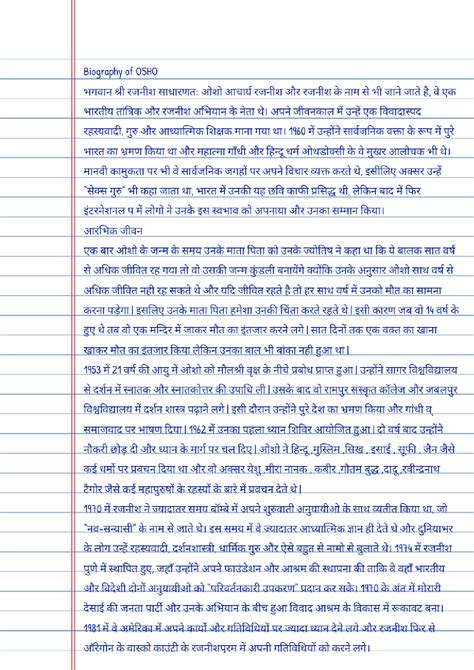 Biography of OSHO
भगवान श्री रजनीश साधारणत: ओशो आचार्य रजनीश और रजनीश के नाम से भी जाने जाते है, वे एक
भारतीय तांत्रिक और रजनीश अभियान के नेता थे। अपने जीवनकाल में उन्हें एक विवादास्पद
रहस्यवादी, गुरु और आध्यात्मिक शिक्षक माना गया था। 1960 में उन्होंने सार्वजनिक वक्ता के रूप में पुरे
भारत का भ्रमण किया था और महात्मा गाँधी और हिन्दू धर्म ओथडोक्सी के वे मुखर आलोचक भी थे।
मानवी कामुकता पर भी वे सार्वजनिक जगहों पर अपने विचार व्यक्त करते थे, इसीलिए अक्सर उन्हें
“सेक्स गुरु” भी कहा जाता था, भारत में उनकी यह छवि काफी प्रसिद्ध थी, लेकिन बाद में फिर
इंटरनेशनल प में लोगो ने उनके इस स्वभाव को अपनाया और उनका सम्मान किया।
आरंभिक जीवन
एक बार ओशो के जन्म के समय उनके माता पिता को उनके ज्योतिष ने कहा था कि ये बालक सात वर्ष
से अधिक जीवित रह गया तो वो उसकी जन्म कुंडली बनायेंगे क्योंकि उनके अनुसार ओशो साथ वर्ष से
अधिक जीवित नही रह सकते थे और यदि जीवित रहते है तो हर साथ वर्ष में उनको मौत का सामना
करना पड़ेगा | इसलिए उनके माता पिता हमेशा उनकी चिंता करते रहते थे | इसी कारण जब वो 14 वर्ष के
हुए थे तब वो एक मन्दिर में जाकर मौत का इंतजार करने लगे | सात दिनों तक एक वक़्त का खाना
खाकर मौत का इंतजार किया लेकिन उनका बाल भी बांका नही हुआ था |
1953 में 21 वर्ष की आयु में ओशो को मौलश्री वृक्ष के नीचे प्रबोध प्राप्त हुआ | उन्होंने सागर विश्वविद्यालय
से दर्शन में स्नातक और स्नातकोत्तर की उपाधि ली | उसके बाद वो रामपुर संस्कृत कॉलेज और जबलपुर
विश्वविद्यालय में दर्शन शास्त्र पढ़ाने लगे | इसी दौरान उन्होंने पुरे देश का भ्रमण किया और गांधी व्
समाजवाद पर भाषण दिया | 1962 में उनका पहला ध्यान शिविर आयोजित हुआ | दो वर्ष बाद उन्होंने
नौकरी छोड़ दी और ध्यान के मार्ग पर चल दिए | ओशो ने हिन्दू ,मुस्लिम ,सिख , इसाई , सूफी , जैन जैसे
कई धर्मो पर प्रवचन दिया था और वो अक्सर येशु ,मीरा नानक , कबीर ,गौतम बुद्ध ,दादू ,रवीन्द्रनाथ
टैगोर जैसे कई महापुरुषों के रहस्यों के बारे में प्रवचन देते थे |
1970 में रजनीश ने ज्यादातर समय बॉम्बे में अपने शुरुवाती अनुयायीओ के साथ व्यतीत किया था, जो
“नव-सन्यासी” के नाम से जाते थे। इस समय में वे ज्यादातर आध्यात्मिक ज्ञान ही देते थे और दुनियाभर
के लोग उन्हें रहस्यवादी, दर्शनशास्त्री, धार्मिक गुरु और ऐसे बहुत से नामो से बुलाते थे। 1974 में रजनीश
पुणे में स्थापित हुए, जहाँ उन्होंने अपने फाउंडेशन और आश्रम की स्थापना की ताकि वे वहाँ भारतीय
और विदेशी दोनों अनुयायीओ को “परिवर्तनकारी उपकरण” प्रदान कर सके। 1970 के अंत में मोरारी
देसाई की जनता पार्टी और उनके अभियान के बीच हुआ विवाद आश्रम के विकास में रूकावट बना।
1981 में वे अमेरिका में अपने कार्यो और गतिविधियों पर ज्यादा ध्यान देने लगे और रजनीश फिर से
ऑरेगोन के वास्को काउंटी के रजनीशपुरम में अपनी गतिविधियों को करने लगे।